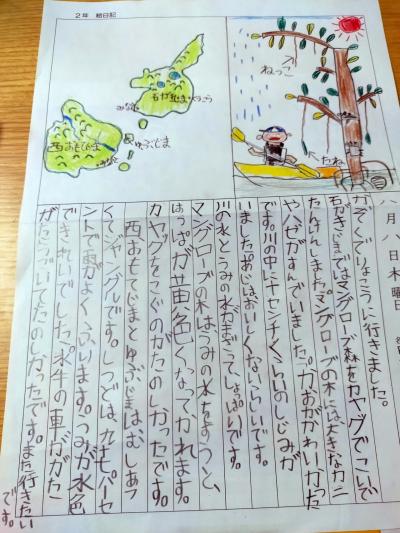 2年 絵日記
石がきじま
みなと
西おもてじま
みなと
ゆぶじま
ねっこ
たね
八月八日木曜日
かぞくでりょこうに行きました。
石がきじまではマングローブ森をカヤックでこいで
たんけんしました。マングローブの木には大きなカニ
やハゼがすんでいました。かおがかわいかった
です。川の中に十センチくらいのしじみが
いました。あじはおいしくないらしいです。
川の水とうみの水がまざって、しょっぱいです。
マングローブの木はうみの水をすうと、
はっぱが黄色くなって、かれます。
カヤックをこぐのがたのしかったです。
西おもてじまとゆぶじまは、むしあつ
くてジャングルです。しつどは九十パーセ
ントで雨がよくふります。うみが水色
できれいでした。水牛の車ががた
がたうごいてたのしかったです。また行きたい
です。